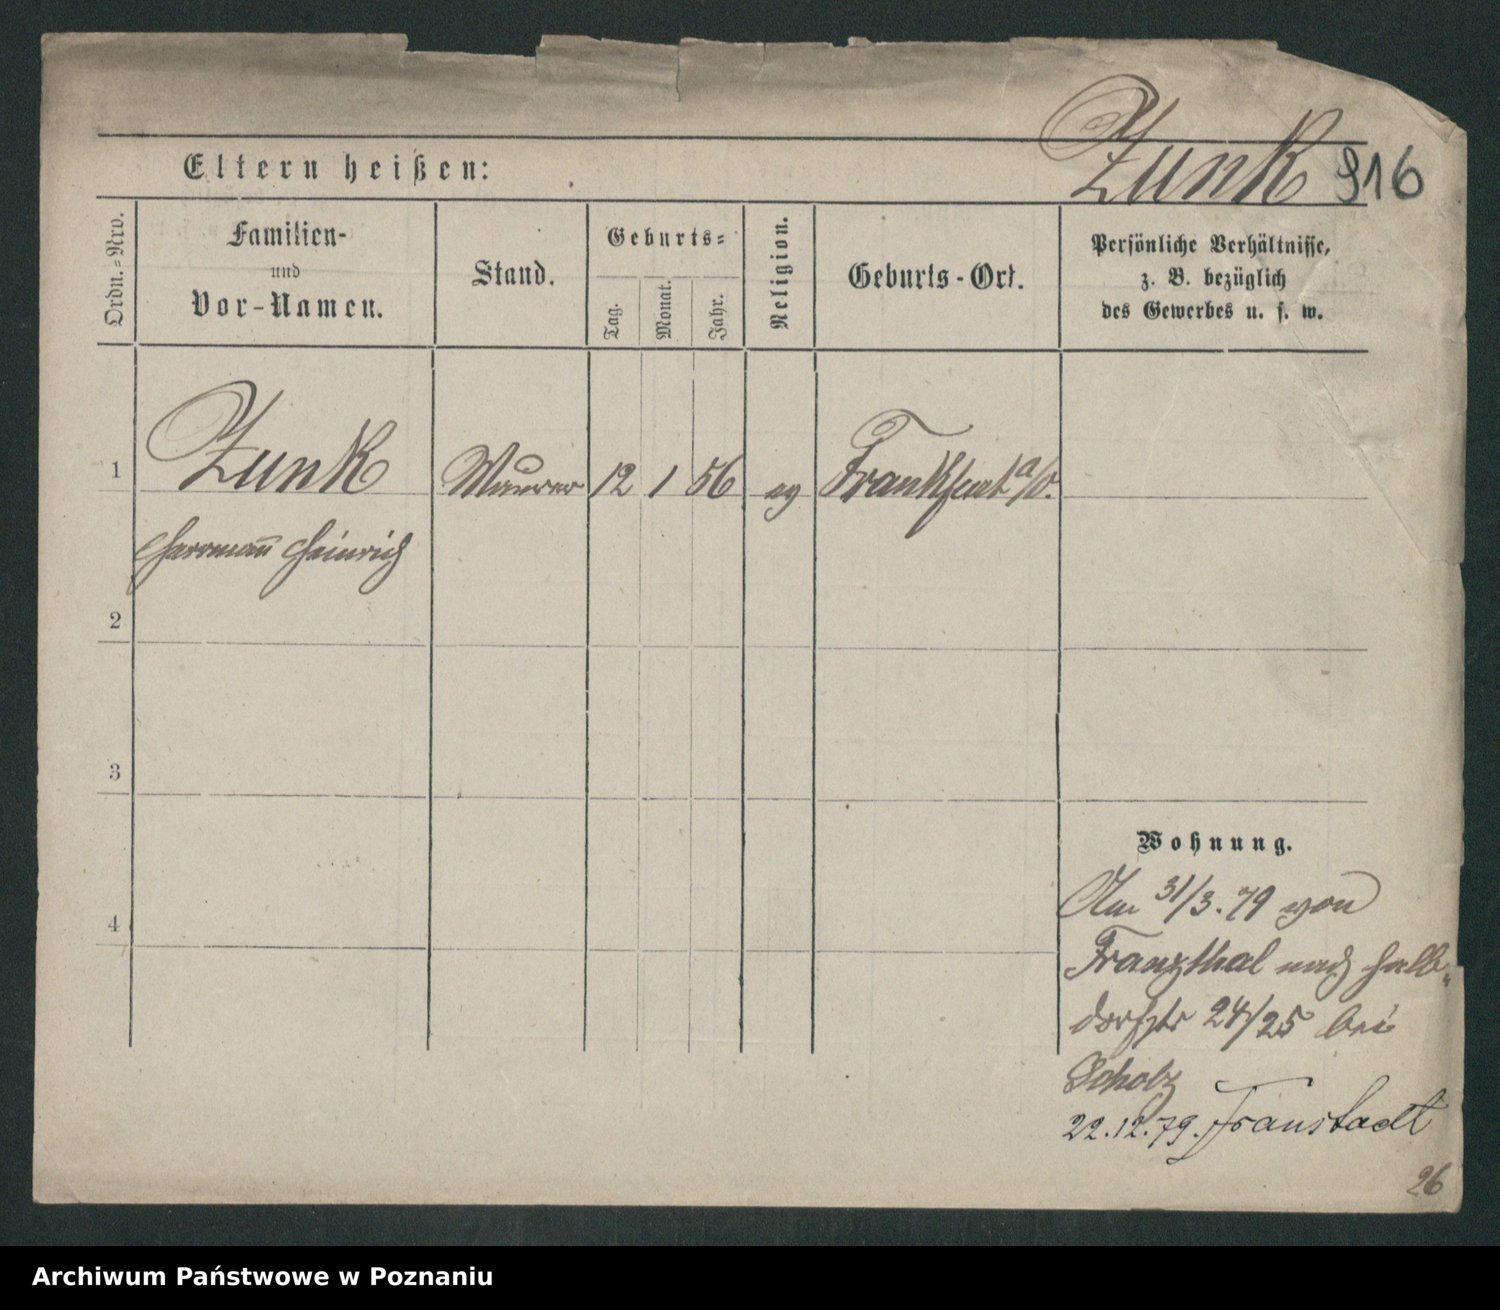 Zunk 916
Eltern heißen:
Ordn.=Nro.
Familien-
und
Vor-Namen.
Stand.
Geburts=
Tag.
Monat.
Jahr.
Religion.
Geburts-Ort.
Persönliche Verhältnisse,
z. B. bezüglich
des Gewerbes u. s. w.
1 Zunk Maurer 12 1 56 ev Frankfurt a/O.
Herrmann Heinrich
2
3
4
Wohnung.
Am 31/3. 79 von
Franzthal nach Halb-
dorfstr 24/25 bei
Scholz
22.12.79. Fraustadt
26
Archiwum Państwowe w Poznaniu